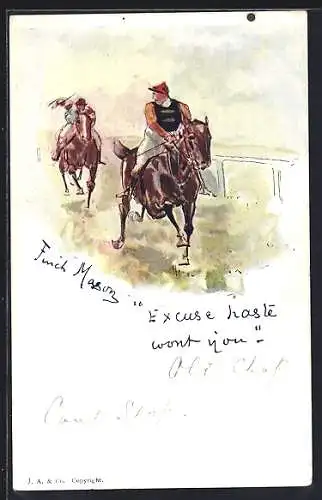 Finch Mason
"Excuse haste
wont you"
Old Chap
Cant Stop.
J. A. & Co. Copyright.